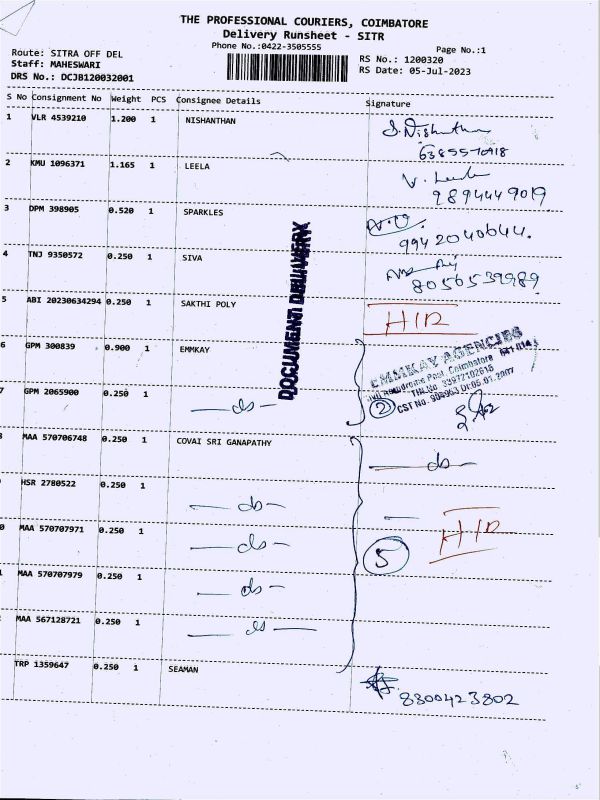 THE PROFESSIONAL COURIERS, COIMBATORE
Delivery Runsheet - SITR
Phone No.:0422-3505555
Page No.:1
Route: SITRA OFF DEL
Staff: MAHESWARI
DRS No.: DCJB120032001
RS No.: 1200320
RS Date: 05-Jul-2023
S No Consignment No Weight PCS Consignee Details Signature
1 VLR 4539210 1.200 1 NISHANTHAN
S. Nishanthan
2 KMU 1096371 1.165 1 LEELA
V. Leela
9894449019
3 DPM 398905 0.520 1 SPARKLES
9942040644.
4 TNJ 9350572 0.250 1 SIVA
8056539989
DOCUMENT DELIVERY
5 ABI 20230634294 0.250 1 SAKTHI POLY
6 GPM 300839 0.900 1 EMMKAY
EMMKAY AGENCIES
Civil Aerodrome Post, Coimbatore 641 014
CST No. 904963 Dt 05.01.2007
7 GPM 2065900 0.250 1 — do —
2
MAA 570706748 0.250 1 COVAI SRI GANAPATHY
— do —
HSR 2780522 0.250 1 — do —
MAA 570707971 0.250 1 — do —
5
MAA 570707979 0.250 1 — do —
MAA 567128721 0.250 1 — do —
TRP 1359647 0.250 1 SEAMAN
8300423802